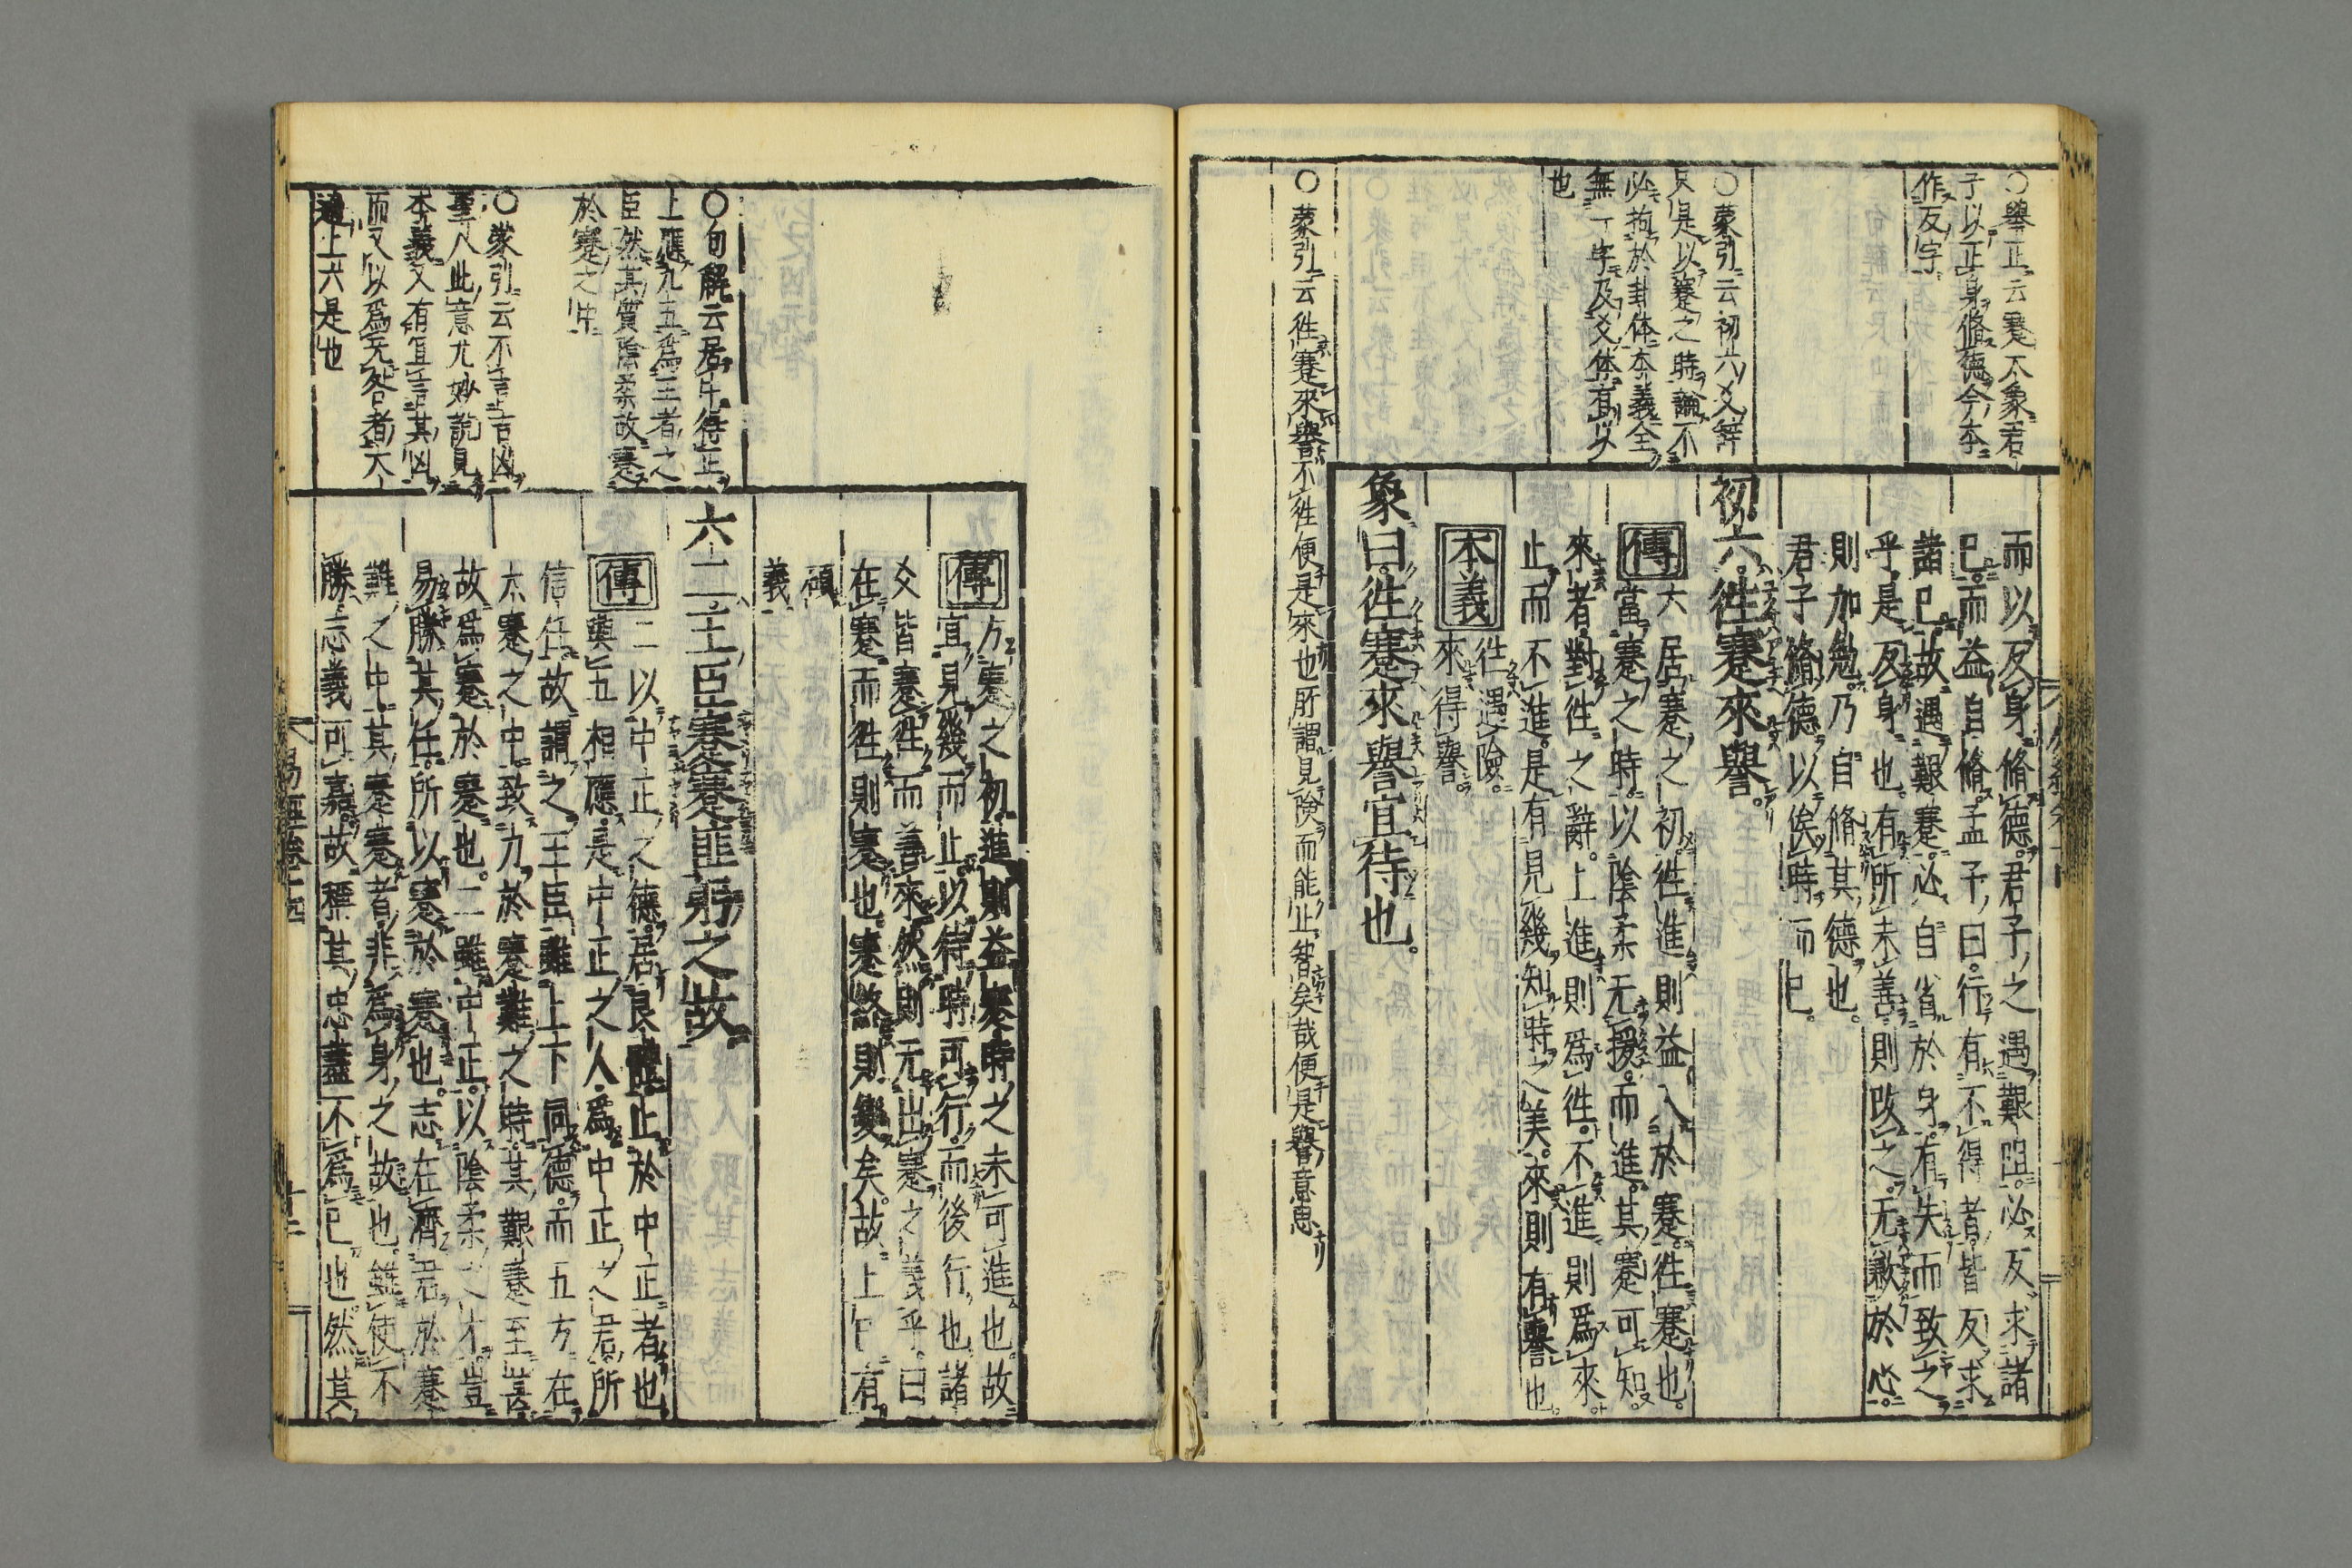 ○舉正云蹇大象君
子以正身脩德今本
作反字
○蒙引云初六爻辭
只是以蹇之時論不
必拘於卦体本義全
無一字及爻体有以
也
而以反身脩德君子之遇艱阻必反求諸
已而益自脩孟子曰行有不得者皆反求
諸已故遇艱蹇必自省於身有失而致之
乎是反身也有所未善則改之无歉於心
則加勉乃自脩其德也
君子脩德以俟時而已
初六往蹇來譽
傳六居蹇之初往進則益入於蹇往蹇也
當蹇之時以陰柔无援而進其蹇可知
來者對往之辭上進則爲往不進則爲來
止而不進是有見幾知時之美來則有譽也
本義往遇險
來得譽
象曰往蹇來譽宜待也
○蒙引云往蹇來譽不往便是來也所謂見險而能止智矣哉便是譽意思
傳方蹇之初進則益蹇時之未可進也故
宜見幾而止以待時可行而後行也諸
爻皆蹇往而善來然則无出蹇之義乎曰
在蹇而往則蹇也蹇終則變矣故上曰有
碩
義
○句解云居中待正
上應九五爲王者之
臣然其質陰柔故蹇
於蹇之中
○蒙引云不言吉凶
聖人此意尤妙說見
本義又有宜言其凶
而又以爲无咎者大
過上六是也
六二王臣蹇蹇匪躬之故
傳二以中正之德居艮體止於中正者也
與五相應是中正之人爲中正之君所
信任故謂之王臣雖上下同德而五方在
大蹇之中致力於蹇難之時其艱蹇至甚
故爲蹇於蹇也二雖中正以陰柔之才豈
易勝其任所以蹇於蹇也志在濟君於蹇
難之中其蹇蹇者非爲身之故也雖使不
勝志義可嘉故稱其忠藎不爲已也然其
易經卷十四
十二